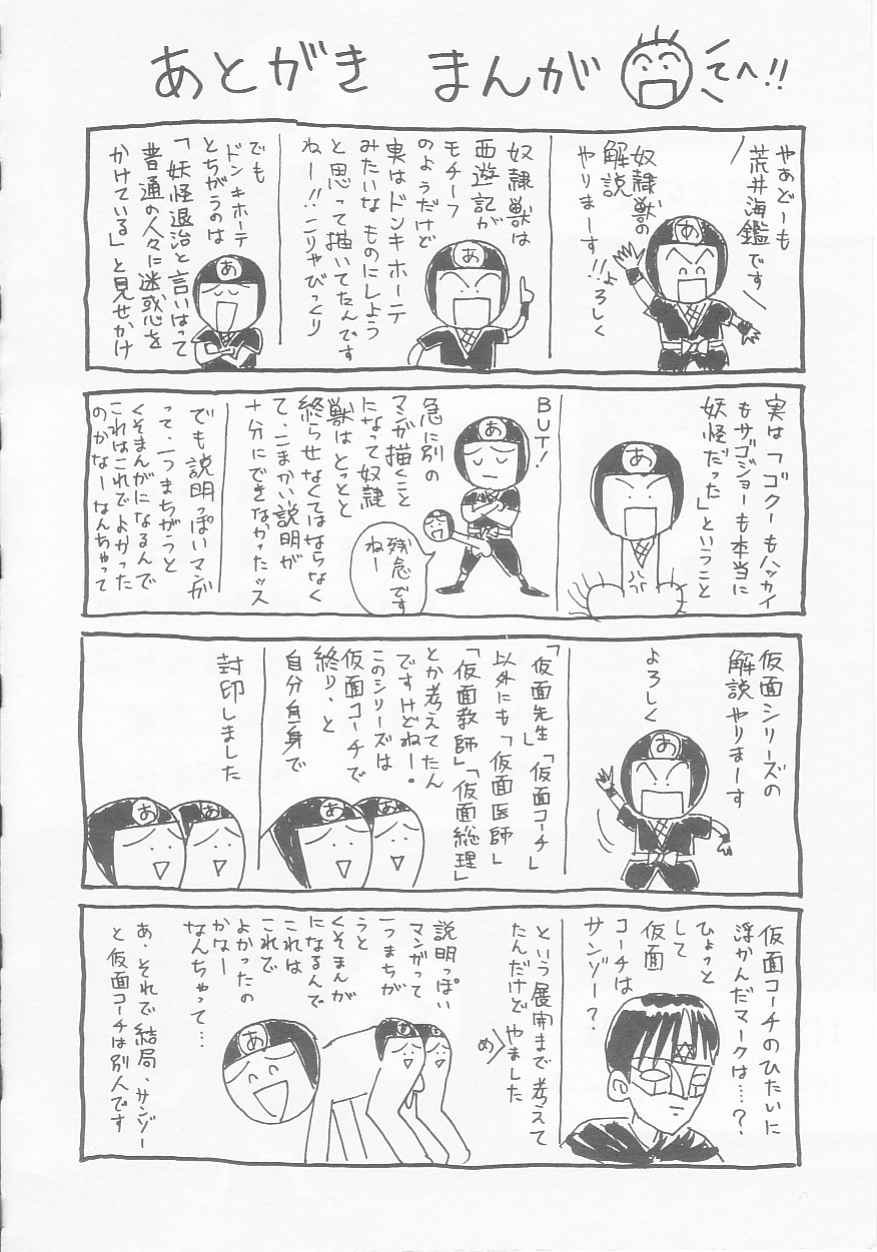 あとがき まんが
てへ!!
やあどーも
荒井海鑑です
奴隷獣の
解説
やりまーす!!
よろしく
奴隷獣は
西遊記が
モチーフ
のようだけど
実はドンキホーテ
みたいなものにしよう
と思って描いてたんです
ねー!!こりゃびっくり
でも
ドンキホーテ
とちがうのは
「妖怪退治と言いはって
普通の人々に迷惑を
かけている」と見せかけ
実は「ゴクーもハッカイ
もサゴジョーも本当に
妖怪だった」ということ
BUT!
急に別の
マンガ描くこと
になって奴隷
獣はとっとと
終らせなくてはならなく
て、こまかい説明が
十分にできなかったッス
残念です
ねー
でも説明っぽいマンガ
って、一つまちがうと
くそまんがになるんで
これはこれでよかった
のかなーなんちゃって
仮面シリーズの
解説やりまーす
よろしく
「仮面先生」「仮面コーチ」
以外にも「仮面医師」
「仮面教師」「仮面総理」
とか考えてたん
ですけどねー。
このシリーズは
仮面コーチで
終り、と
自分自身で
封印しました
仮面コーチのひたいに
浮かんだマークは…?
ひょっと
して
仮面
コーチは
サンゾー?
という展開まで考えて
たんだけどやました
め
説明っぽい
マンガって
一つまちが
うと
くそまんが
になるんで
これは
これで
よかったの
かなー
なんちゃって…
あ、それで結局、サンゾー
と仮面コーチは別人です